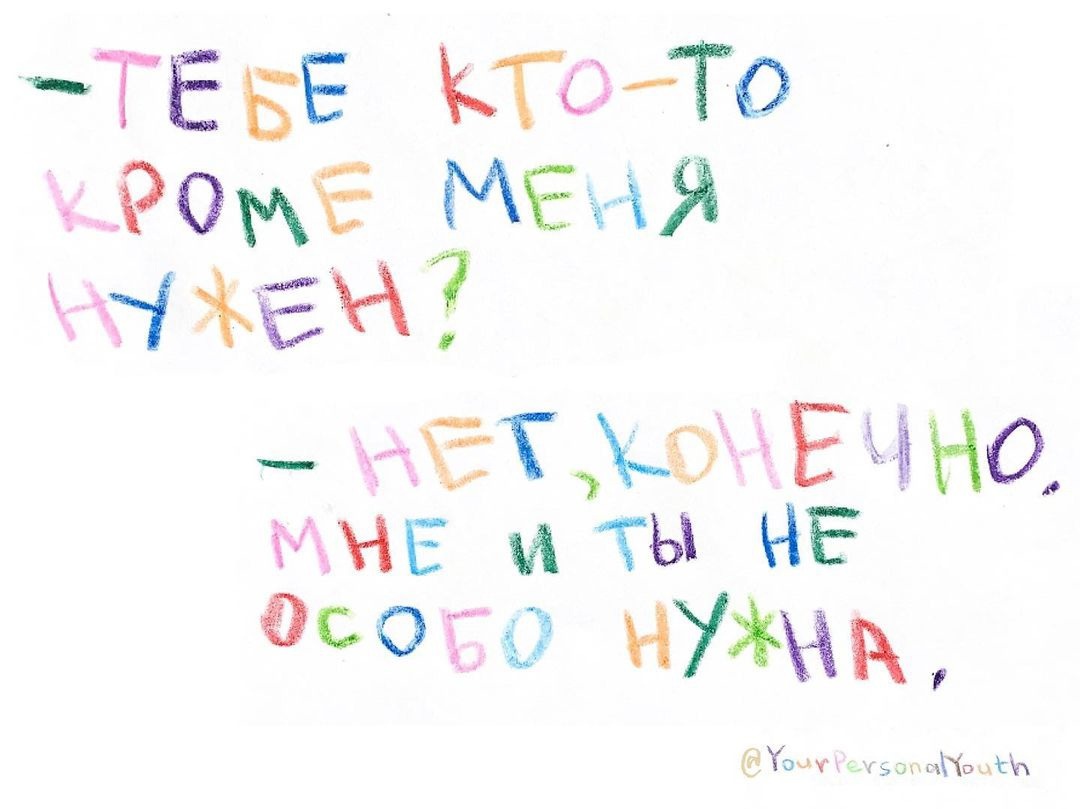 -ТЕБЕ КТО-ТО
КРОМЕ МЕНЯ
НУЖЕН?
- НЕТ, КОНЕЧНО.
МНЕ И ТЫ НЕ
ОСОБО НУЖНА.
@YourPersonalYouth